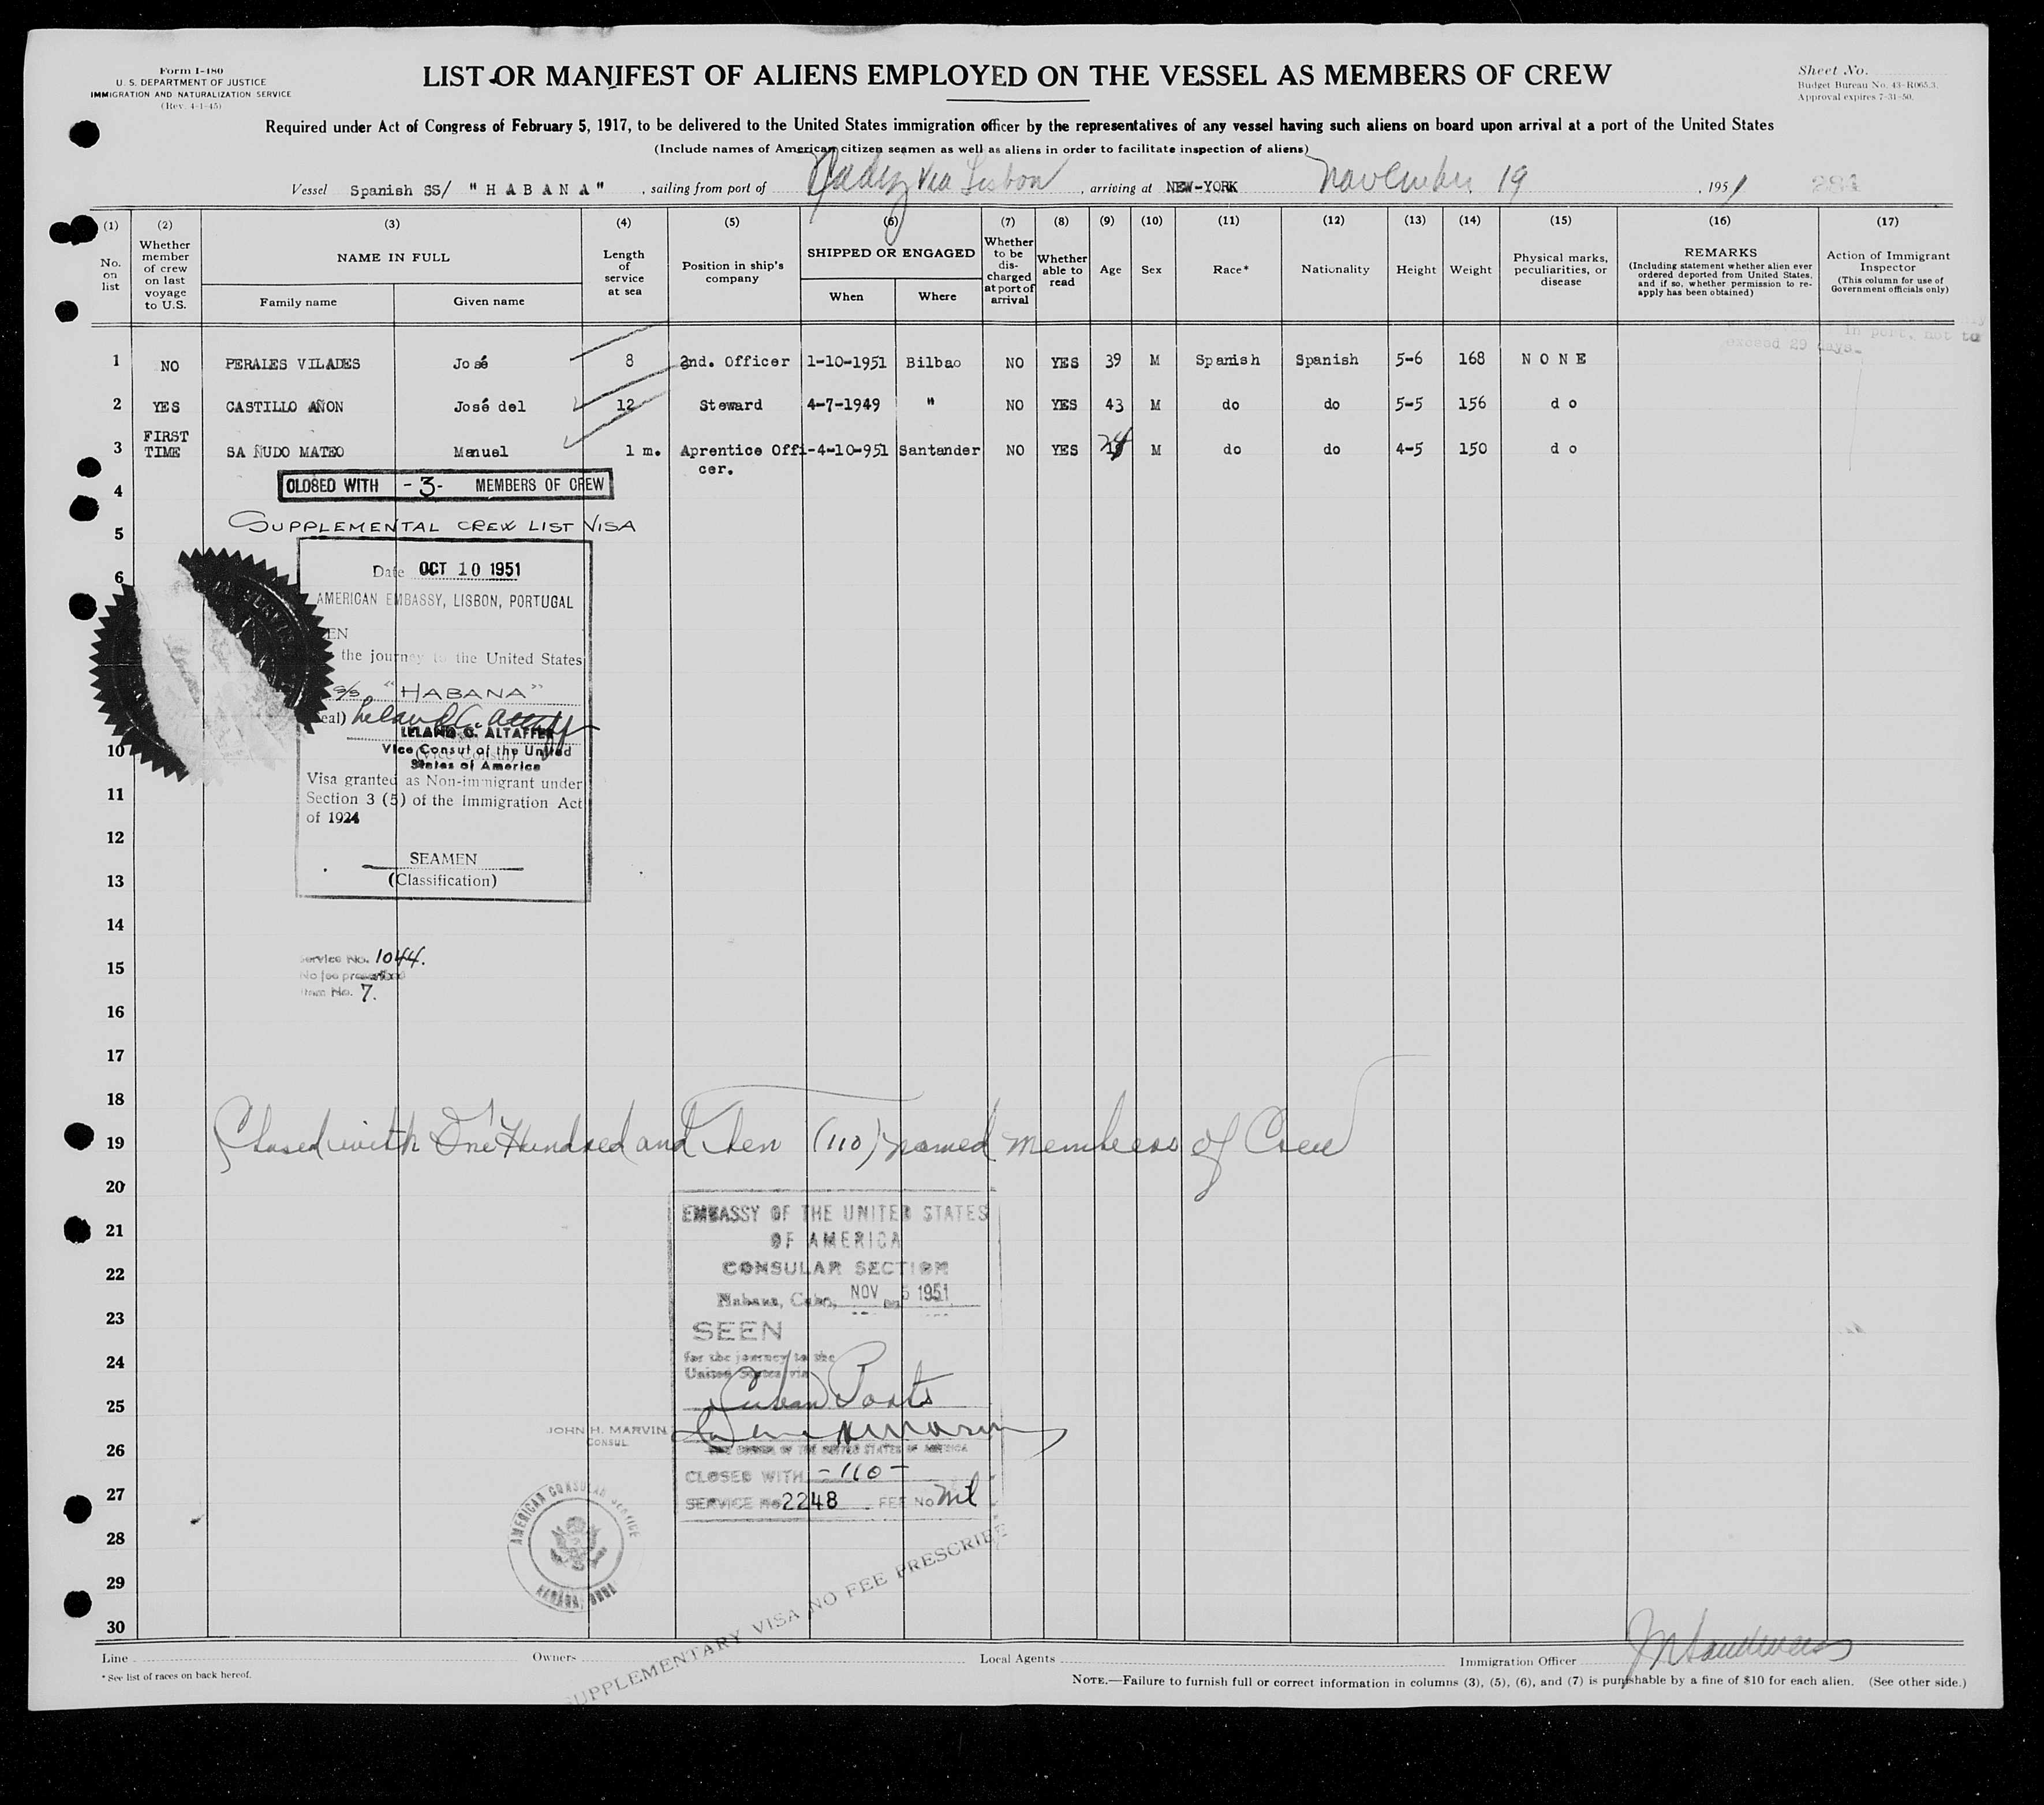 Form I-480
U. S. DEPARTMENT OF JUSTICE
IMMIGRATION AND NATURALIZATION SERVICE
(Rev. 4-1-45)
LIST OR MANIFEST OF ALIENS EMPLOYED ON THE VESSEL AS MEMBERS OF CREW
Sheet No.
Budget Bureau No. 43-R065.3.
Approval expires 7-31-50.
Required under Act of Congress of February 5, 1917, to be delivered to the United States immigration officer by the representatives of any vessel having such aliens on board upon arrival at a port of the United States
(Include names of American citizen seamen as well as aliens in order to facilitate inspection of aliens)
Vessel Spanish SS/ "HABANA" , sailing from port of via Lisbon , arriving at NEW-YORK November 19 , 1951
(1) (2) (3) (4) (5) (6) (7) (8) (9) (10) (11) (12) (13) (14) (15) (16) (17)
No. on list
Whether member of crew on last voyage to U.S.
NAME IN FULL
Family name
Given name
Length of service at sea
Position in ship's company
SHIPPED OR ENGAGED
When
Where
Whether to be discharged at port of arrival
Whether able to read
Age
Sex
Race*
Nationality
Height
Weight
Physical marks, peculiarities, or disease
REMARKS
(Including statement whether alien ever ordered deported from United States, and if so, whether permission to reapply has been obtained)
Action of Immigrant Inspector
(This column for use of Government officials only)
in port, not to
exceed 29 days.
1 NO PERALES VILADES José 8 2nd. Officer 1-10-1951 Bilbao NO YES 39 M Spanish Spanish 5-6 168 NONE
2 YES CASTILLO AÑON José del 12 Steward 4-7-1949 " NO YES 43 M do do 5-5 156 do
3 FIRST TIME SA ÑUDO MATEO Manuel 1 m. Aprentice Officer. -4-10-951 Santander NO YES 24 M do do 4-5 150 do
4 CLOSED WITH -3- MEMBERS OF CREW
5 SUPPLEMENTAL CREW LIST VISA
6 Date OCT 10 1951
AMERICAN EMBASSY, LISBON, PORTUGAL
EN
the journey to the United States
S/S "HABANA"
eal) Leland C. Altaffer
LELAND C. ALTAFFER
10 Vice Consul of the United
States of America
Visa granted as Non-immigrant under
11 Section 3 (5) of the Immigration Act
of 1924
12
SEAMEN
13 (Classification)
14
15 Service No. 1044.
No fee prescribed
Item No. 7.
16
17
18
19 Closed with One Hundred and Ten (110) named members of Crew
20
21 EMBASSY OF THE UNITED STATES
OF AMERICA
22 CONSULAR SECTION
Habana, Cuba, NOV 5 1951
23 SEEN
24 for the journey to the
United States via
25 Cuban Ports
JOHN H. MARVIN
CONSUL
26 VICE CONSUL OF THE UNITED STATES OF AMERICA
CLOSED WITH -110-
27 SERVICE No 2248 FEE No nil
28 AMERICAN CONSULAR SERVICE
HABANA, CUBA
29 SUPPLEMENTARY VISA NO FEE PRESCRIBE
30
Line Owners Local Agents Immigration Officer
*See list of races on back hereof.
NOTE.—Failure to furnish full or correct information in columns (3), (5), (6), and (7) is punishable by a fine of $10 for each alien. (See other side.)